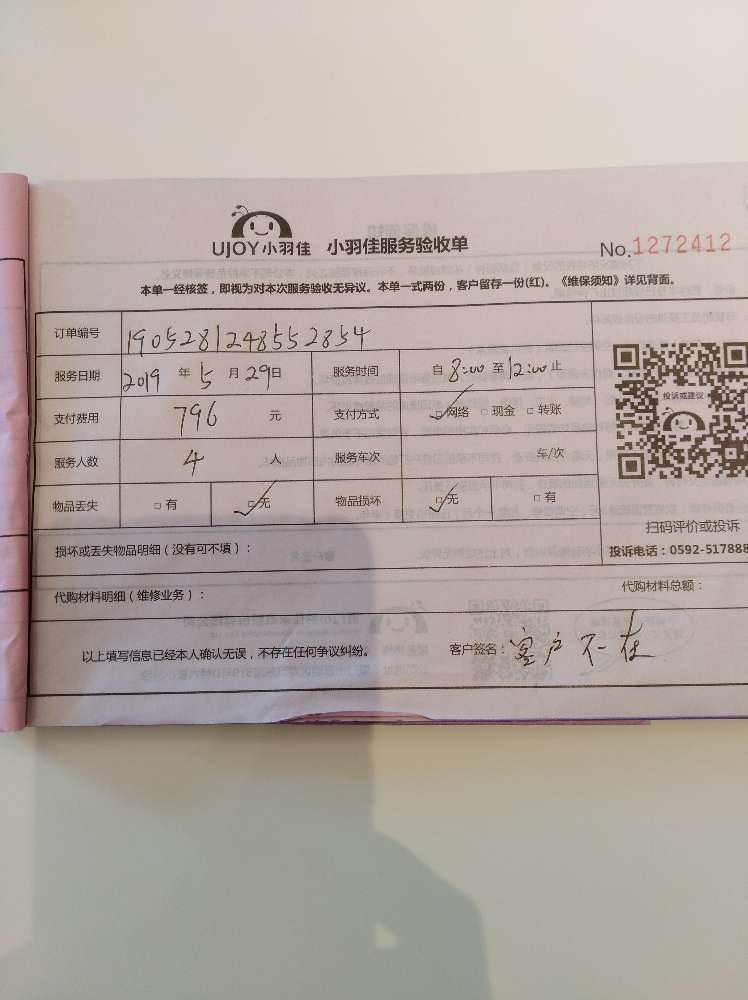 UJOY小羽佳 小羽佳服务验收单 No.1272412
本单一经核签，即视为对本次服务验收无异议。本单一式两份，客户留存一份(红)。《维保须知》详见背面。
订单编号 1905281248552854
服务日期 2019 年 5 月 29日 服务时间 自 8:00 至 12:00 止
支付费用 796 元 支付方式 网络 现金 转账
投诉或建议
服务人数 4 人 服务车次 车/次
物品丢失 有 无 物品损坏 无 有
扫码评价或投诉
损坏或丢失物品明细（没有可不填）： 投诉电话：0592-517888
代购材料明细（维修业务）： 代购材料总额：
以上填写信息已经本人确认无误，不存在任何争议纠纷。 客户签名：客户不在